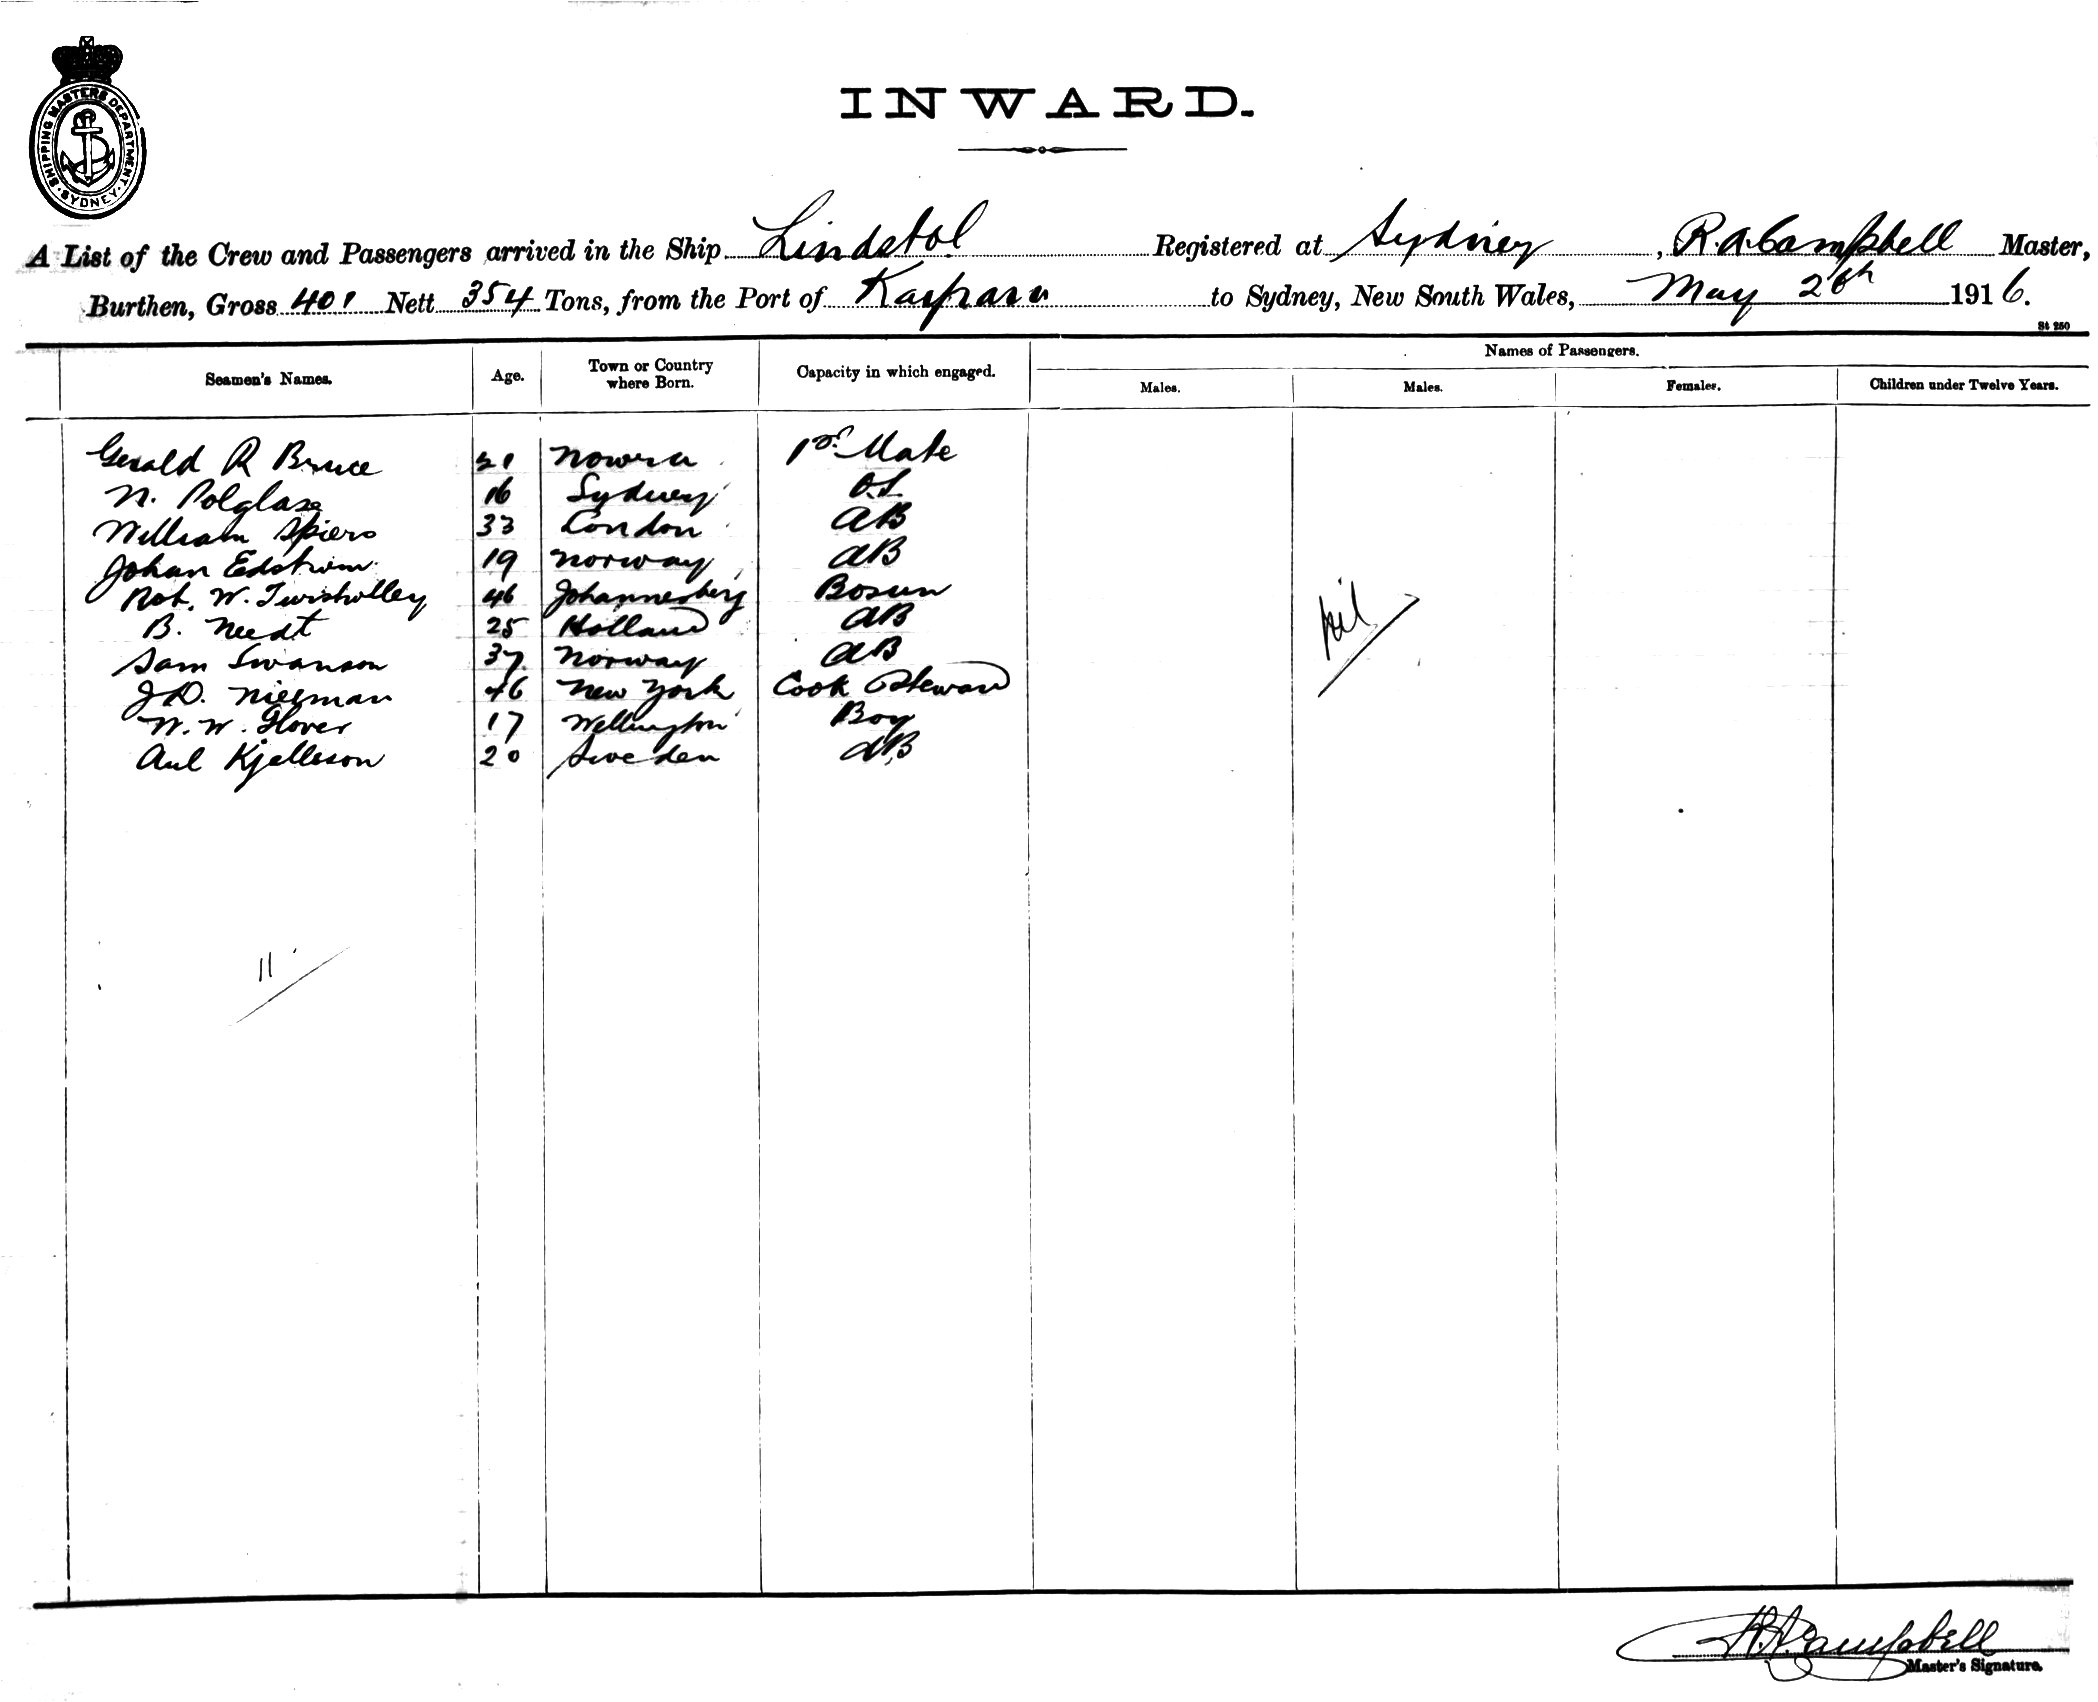 SHIPPING MASTERS DEPARTMENT. SYDNEY.
INWARD.
A List of the Crew and Passengers arrived in the Ship Lindstol Registered at Sydney, R.A. Campbell Master,
Burthen, Gross 401 Nett 354 Tons, from the Port of Kaipara to Sydney, New South Wales, May 26th 1916.
St 250
Seamen's Names. Age. Town or Country where Born. Capacity in which engaged. Names of Passengers.
Males. Males. Females. Children under Twelve Years.
Gerald R Bruce 21 Nowra 1st Mate
N. Polglase 16 Sydney O.S.
William Spiers 33 London AB
Johan Edstrom 19 Norway AB
Robt. W. 46 Johannesberg Bosun
B. Needt 25 Holland AB
Sam Swanson 37 Norway AB
J.D. Nieeman 46 New York Cook Steward
W. W. Glover 17 Wellington Boy
Aul Kjelleson 20 Sweden AB
Nil
11
R.A. Campbell
Master's Signature.